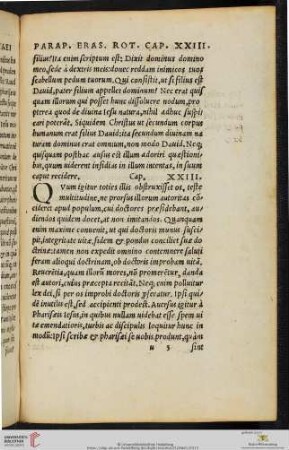 PARAP. ERAS. ROT. CAP. XXIII.
filius? Ita enim scriptum est: Dixit dominus domino
meo, sede à dextris meis: donec reddam inimicos tuos
scabellum pedum tuorum. Qui consistit, ut si filius est
Dauid, pater filium appellet dominum? Nec erat quis
quam illorum qui posset hunc dissoluere nodum, pro
pterea quod de diuina Iesu natura, nihil adhuc suspi
cari poterāt. Siquidem Christus ut secundum corpus
humanum erat filius Dauid: ita secundum diuinam na
turam dominus erat omnium, non modo Dauid. Neq;
quisquam posthac ausus est illum adoriri quæstioni
bus, quum uiderent insidias in illum intentas, in suum
caput recidere. Cap. XXIII.
QVum igitur toties illis obstruxisset os, teste
multitudine, ne prorsus illorum autoritas con
cideret apud populum, cui doctores præsidebant, au
diendos quidem docet, at non imitandos. Quanquam
enim maxime conuenit, ut qui doctoris munus susci
pit, integritate uitæ, fidem & pondus conciliet suæ do
ctrinæ: tamen non expedit omnino contemnere saluti
feram alioqui doctrinam, ob doctoris improbam uitā.
Reuerētia, quam illorū mores, nō promerētur, danda
est autori, cuius præcepta recitāt. Neq; enim polluitur
lex dei, si per os improbi doctoris proferatur. Ipsi qui
dē inutilis est, sed accipienti prodest. Auersus igitur à
Pharisæis Iesus, in quibus nullam uidebat esse spem ui
tæ emendatioris, turbis ac discipulis loquitur hunc in
modū: Ipsi scribæ & pharisæi se uobis produnt, quàm
u 5 sint